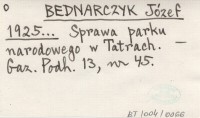 BEDNARCZYK Józef
1925... Sprawa parku
narodowego w Tatrach. —
Gaz. Podh. 13, nr 45.
AT/004/0066